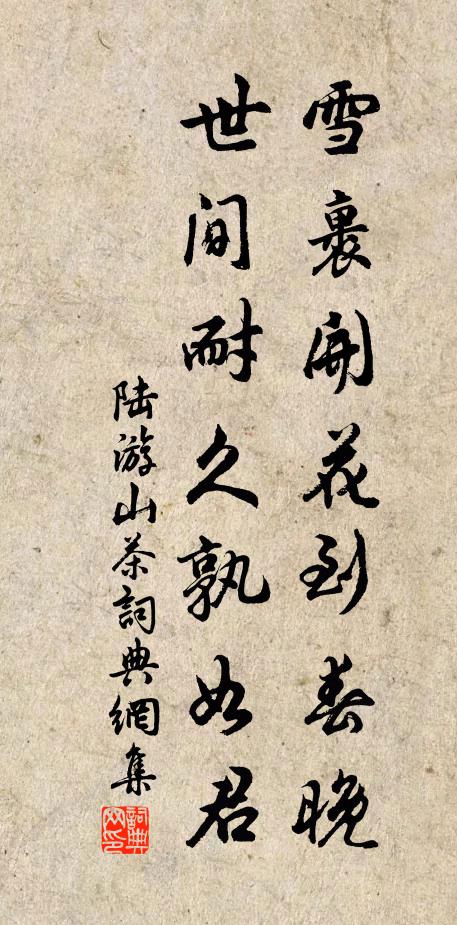 雪裹開花到春晚
世间耐久孰如君
陆游山茶詞典網集
詞典网印